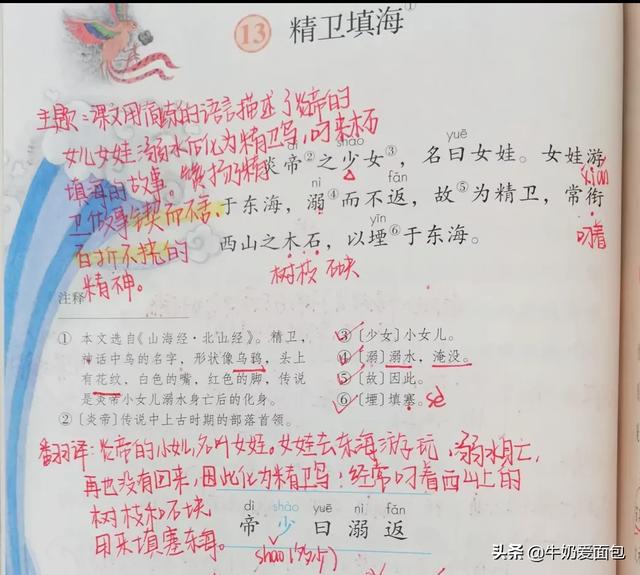 13 精卫填海①
主题：课文用简练的语言描述了炎帝的
女儿女娃溺水后化为精卫鸟，叼来木石
填海的故事。赞扬了精
卫做事锲而不舍、
百折不挠的
精神。
shào yuē
炎帝②之少女③，名曰女娃。女娃游
nì fǎn xián
于东海，溺④而不返，故⑤为精卫，常衔
yīn
西山之木石，以堙⑥于东海。
叼着
树枝 石块
注释
① 本文选自《山海经·北山经》。精卫，
神话中鸟的名字，形状像乌鸦，头上
有花纹，白色的嘴，红色的脚，传说
是炎帝小女儿溺水身亡后的化身。
② 〔炎帝〕传说中上古时期的部落首领。
③ 〔少女〕小女儿。
④ 〔溺〕溺水，淹没。
⑤ 〔故〕因此。
⑥ 〔堙〕填塞。 sè
翻译：炎帝的小女儿，名叫女娃。女娃去东海游玩，溺水身亡，
再也没有回来，因此化为精卫鸟，经常叼着西山上的
树枝和石块
用来填塞东海。
dì shào yuē nì fǎn
帝 少 曰 溺 返
shǎo（多少）
头条 @牛奶爱面包